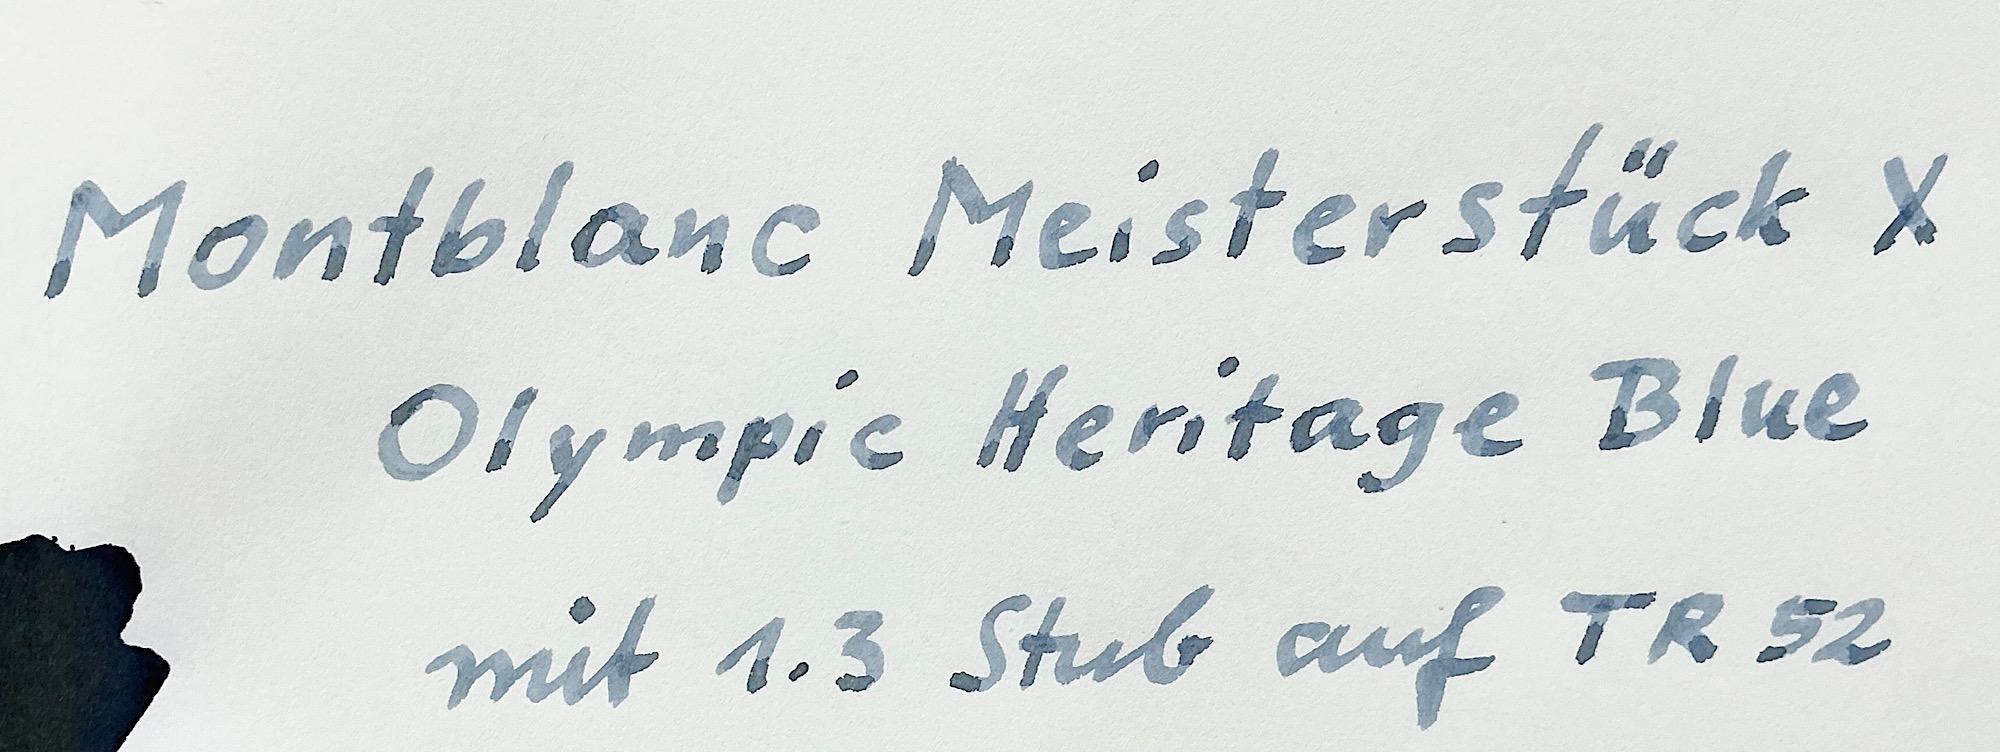 Montblanc Meisterstück X
Olympic Heritage Blue
mit 1.3 Stub auf TR 52